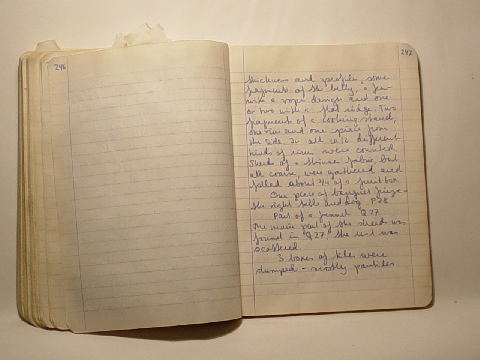 246
247
thickness and profile, some
fragments of the belly, a few
with a rope design and one
or two with a flat ridge. Two
fragments of a cooking stand,
one rim and one piece from
the side. In all 12 different
kinds of rims were counted.
Sherds of a thinner fabric, but
all coarse, were gathered and
filled about 3/4 of a fruit box.
One piece of
the right P28
Part of a funnel Q27
The main part of the sherds was
found in Q27, the rest was
scattered.
3 boxes of tiles were
dumped - mostly pantiles